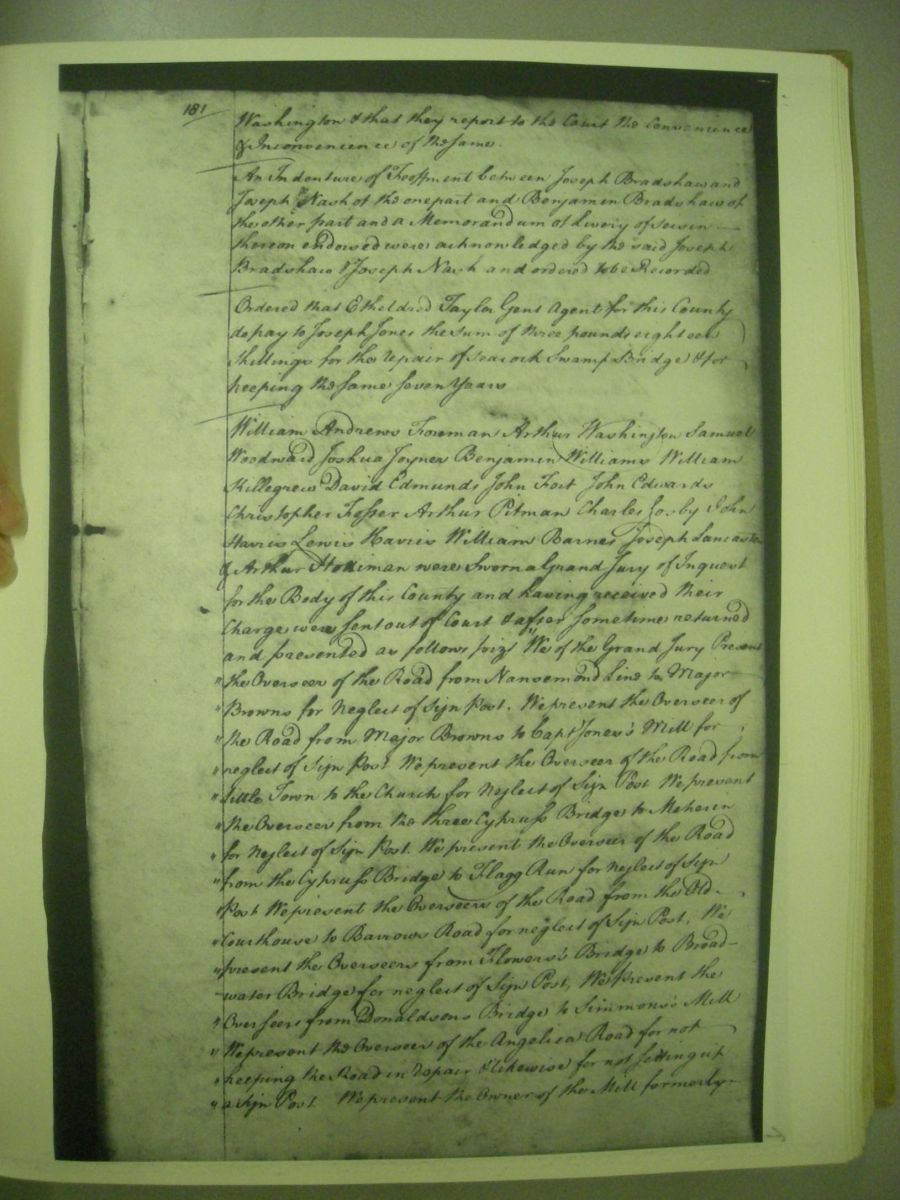 181
Washington & that they report to the Court the Convenience
& Inconvenience of the same.
An Indenture of Feoffment between Joseph Bradshaw and
Joseph Nash of the one part and Benjamin Bradshaw of
the other part and a Memorandum of Livery of Seisin
thereon endorsed were acknowledged by the said Joseph
Bradshaw & Joseph Nash and ordered to be Recorded
Ordered that Etheldred Taylor Gent Agent for this County
do pay to Joseph Jones the sum of three pounds eighteen
shillings for the repair of Seacock Swamp Bridge & for
keeping the same seven Years
William Andrews Foreman Arthur Washington Samuel
Woodward Joshua Joyner Benjamin Williams William
Killegrew David Edmunds John Fort John Edwards
Christopher Arthur Pitman Charles Cosby John
Harris Lewis Harris William Barnes Joseph Lancaster
& Arthur were Sworn a Grand Jury of Inquest
for the Body of this County and having received their
Charge were sent out of Court & after some time returned
and presented as follows vizt "We of the Grand Jury Present
" the Overseer of the Road from Nansemond Line to Major
" Browns for Neglect of Sign Post. We present the Overseer of
" the Road from Major Browns to Capt Jones's Mill for
" neglect of Sign Post We present the Overseer of the Road from
" little Town to the Church for Neglect of Sign Post We present
" the Overseer from the three Cypruss Bridge to Meherin
" for Neglect of Sign Post. We present the Overseer of the Road
" from the Cypruss Bridge to Flagg Run for Neglect of Sign
" Post We present the Overseers of the Road from the Old
" Courthouse to Barrows Road for neglect of Sign Post, We
" present the Overseers from Flowers's Bridge to Broad-
-water Bridge for neglect of Sign Post, We present the
" Overseer from Donaldsons Bridge to Simmons's Mill
" We present the Overseer of the Angelica Road for not
" keeping the Road in repair & likewise for not setting up
" a Sign Post We present the Owner of the Mill formerly